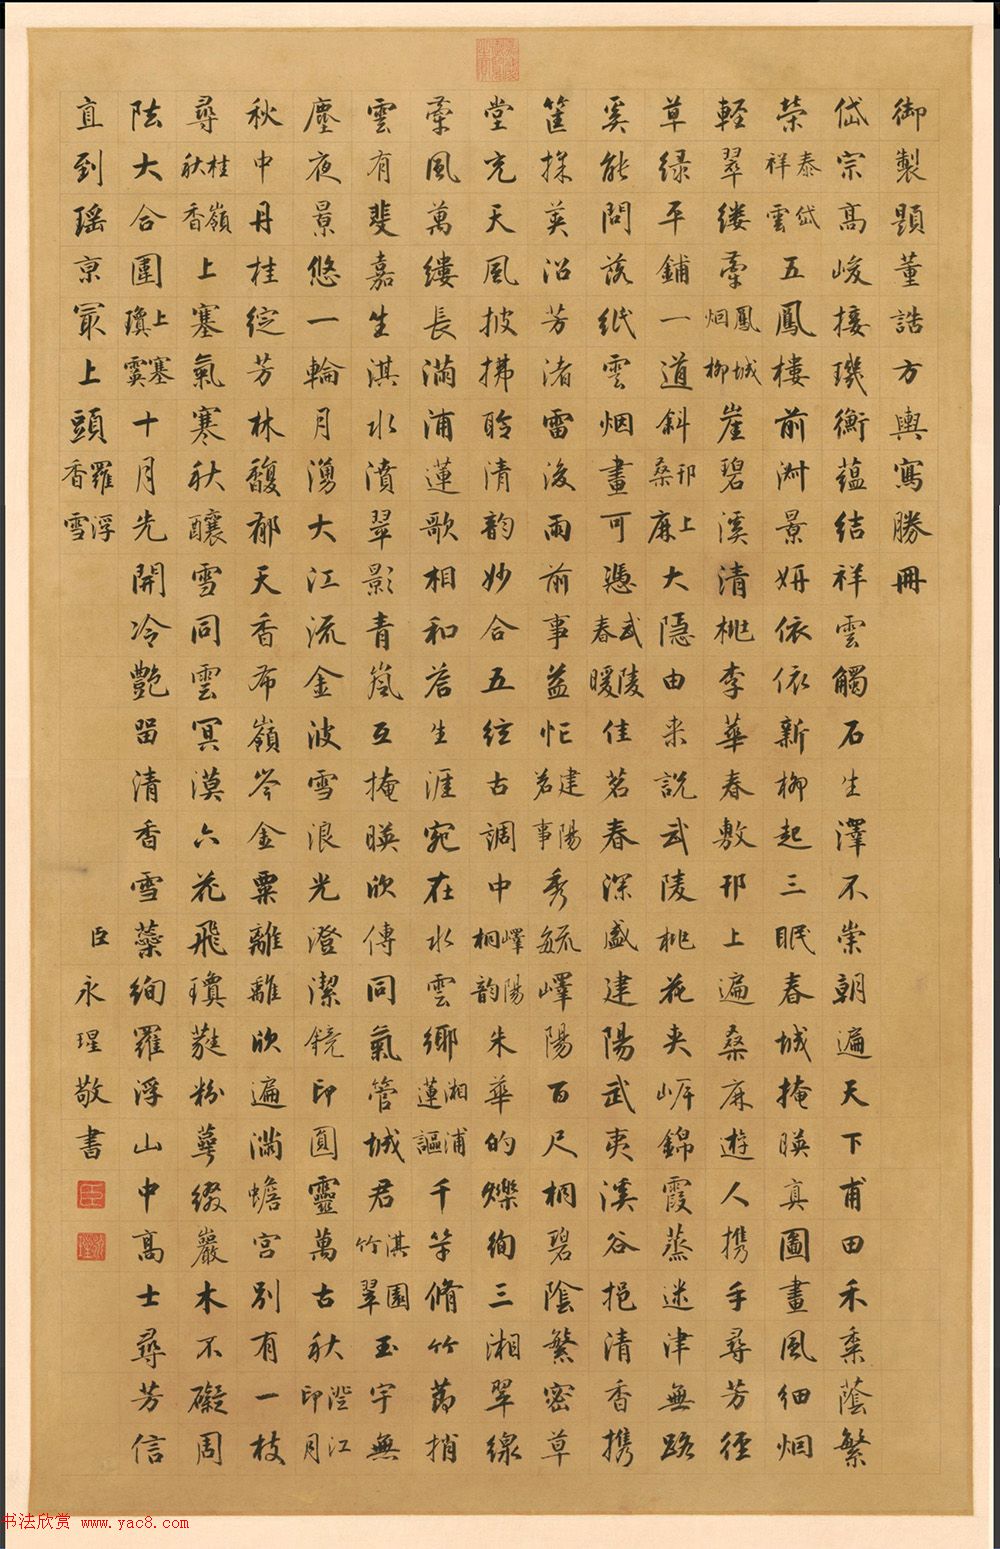 御製題董誥方輿寫勝冊
岱宗高峻接璣衡蘊結祥雲觸石生澤不崇朝遍天下甫田禾黍蔭繁
榮泰岱祥雲五鳳樓前淑景妍依依新柳起三眠春城掩暎真圖畫風細烟
輕翠縷牽鳳城烟柳崖碧溪清桃李華春敷邗上遍桑麻遊人携手尋芳徑
草绿平鋪一道斜邗上桑麻大隱由来説武陵桃花夹岸錦霞蒸迷津無路
奚能問落紙雲烟畫可憑武陵春暖佳茗春深盛建陽武夷溪谷挹清香携
筐採英沿芳渚雷後雨前事益忙建陽茗事秀毓嶧陽百尺桐碧陰繁密草
堂充天風披拂聆清韵妙合五絃古調中嶧陽桐韵朱華的爍絢三湘翠線
牽風萬縷長滿浦蓮歌相和答生涯宛在水雲鄉湘浦蓮謳千竿脩竹蒻梢
雲有斐嘉生淇水濆翠影青嵐互掩暎欣傳同氣管城君淇園竹翠玉宇無
塵夜景悠一輪月湧大江流金波雪浪光澄潔鏡印圓靈萬古秋澄江印月
秋中丹桂綻芳林馥郁天香布嶺岑金粟離離欣遍滿蟾宮別有一枝
尋桂嶺秋香上塞氣寒秋釀雪同雲冥漠六花飛瓊蕤粉蕚綴巖木不礙周
阹大合圍上塞瓊霙十月先開冷艷留清香雪蘂絢羅浮山中高士尋芳信
直到瑶京最上頭羅浮香雪
臣永瑆敬書
书法欣赏 www.yac8.com